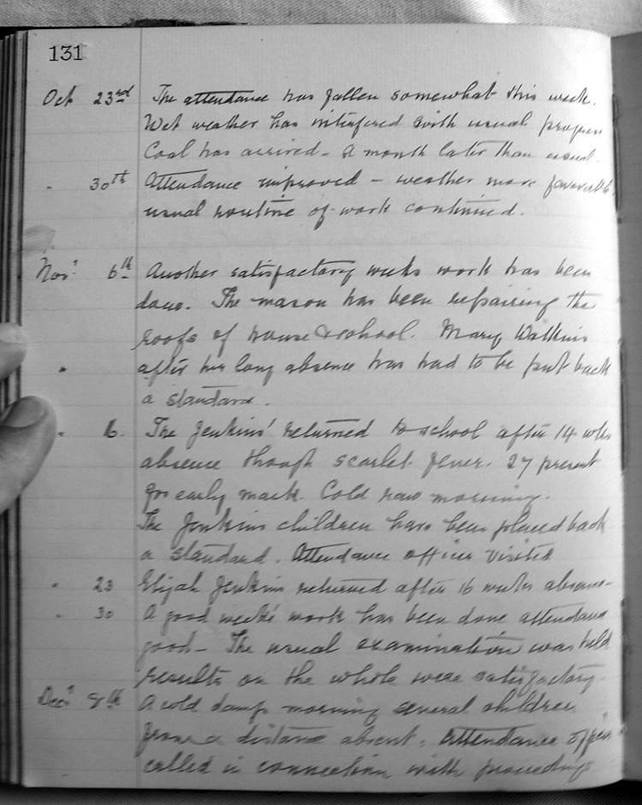 131
Oct 23rd The attendance has fallen somewhat this week.
Wet weather has interfered with usual progress
Coal has arrived - a month later than usual.
" 30th Attendance improved - weather more favorable
usual routine of work continued.
Novr 6th Another satisfactory weeks work has been
done. The mason has been repairing the
roofs of house & school. Mary Watkins
" after her long absence has had to be put back
a standard.
" 16 The Jenkins' returned to school after 14 wks
absence through scarlet fever. 27 present
for early mark. Cold raw morning.
The Jenkins children have been placed back
a standard. Attendance officer visited
" 23 Elijah Jenkins returned after 16 weeks absence
" 30 A good week's work has been done attendance
good - The usual examination was held
results on the whole were satisfactory.
Decr 8th A cold damp morning several children
from a distance absent. Attendance officer
called in connection with proceedings